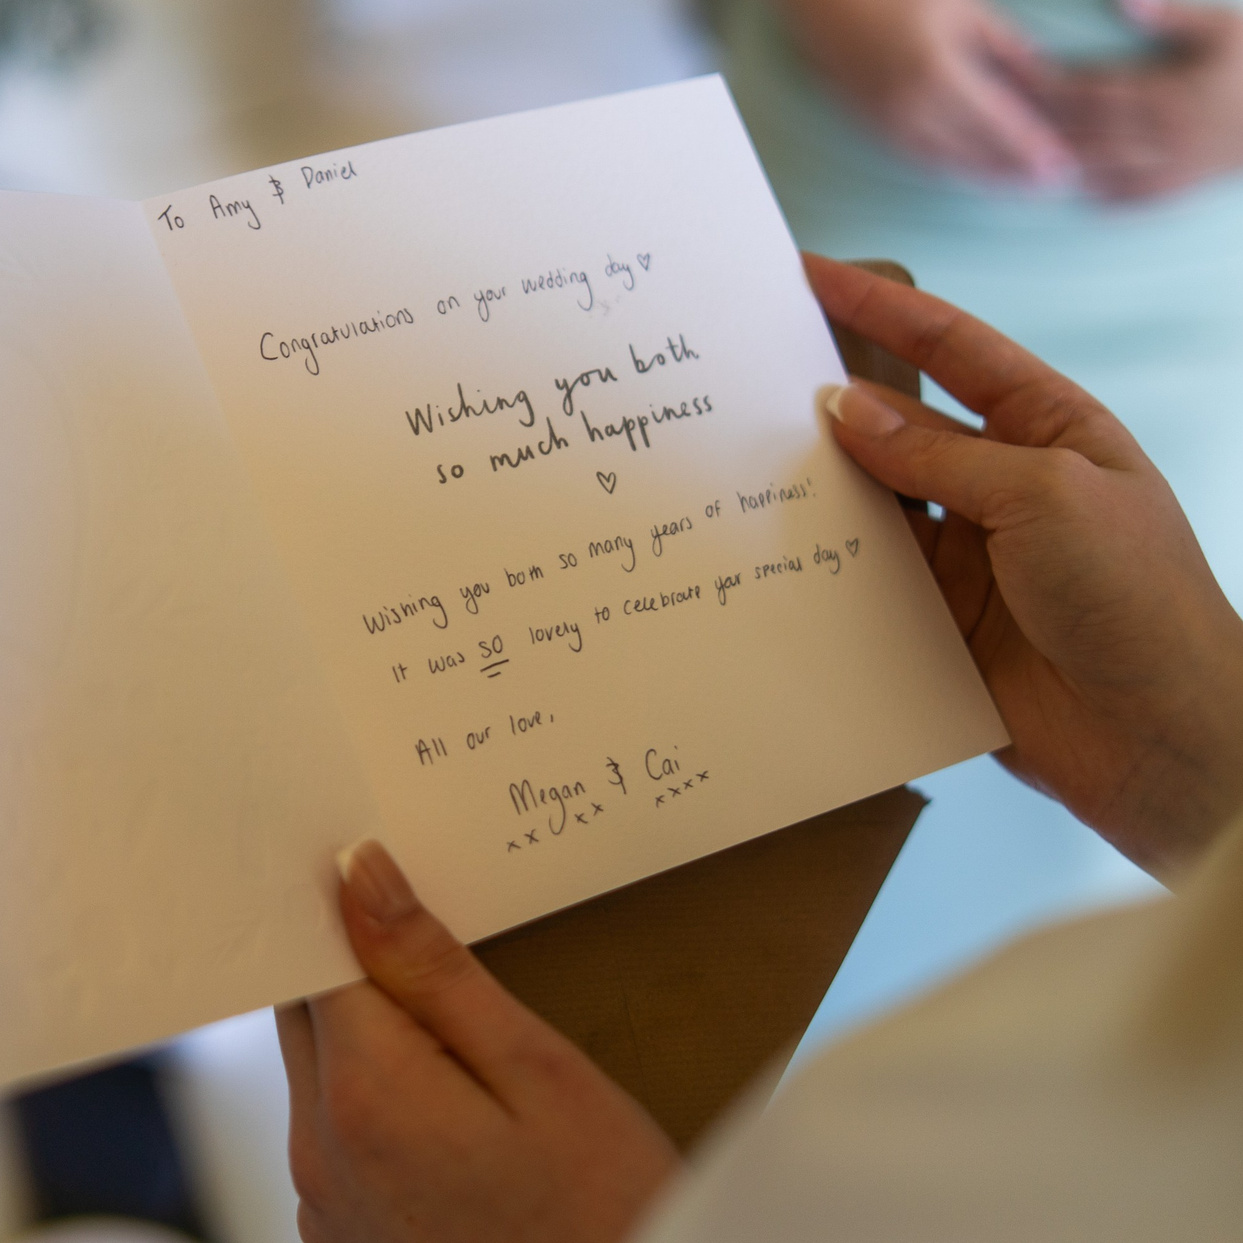 To Amy & Daniel
Congratulations on your wedding day ♡
Wishing you both
so much happiness
♡
Wishing you both so many years of happiness!
It was so lovely to celebrate your special day ♡
All our love,
Megan & Cai
xx xx xxxx